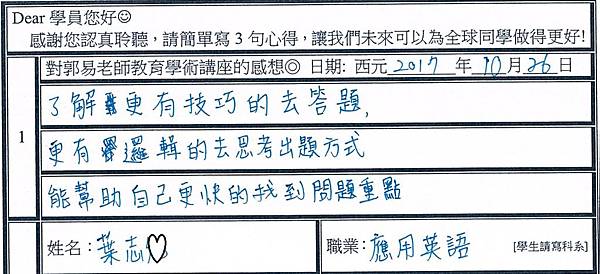 Dear 學員您好☺
感謝您認真聆聽，請簡單寫 3 句心得，讓我們未來可以為全球同學做得更好!
對郭易老師教育學術講座的感想◎ 日期: 西元 2017 年 10 月 26 日
1
了解更有技巧的去答題,
更有邏輯的去思考出題方式
能幫助自己更快的找到問題重點
姓名：葉志♡
職業：應用英語 [學生請寫科系]